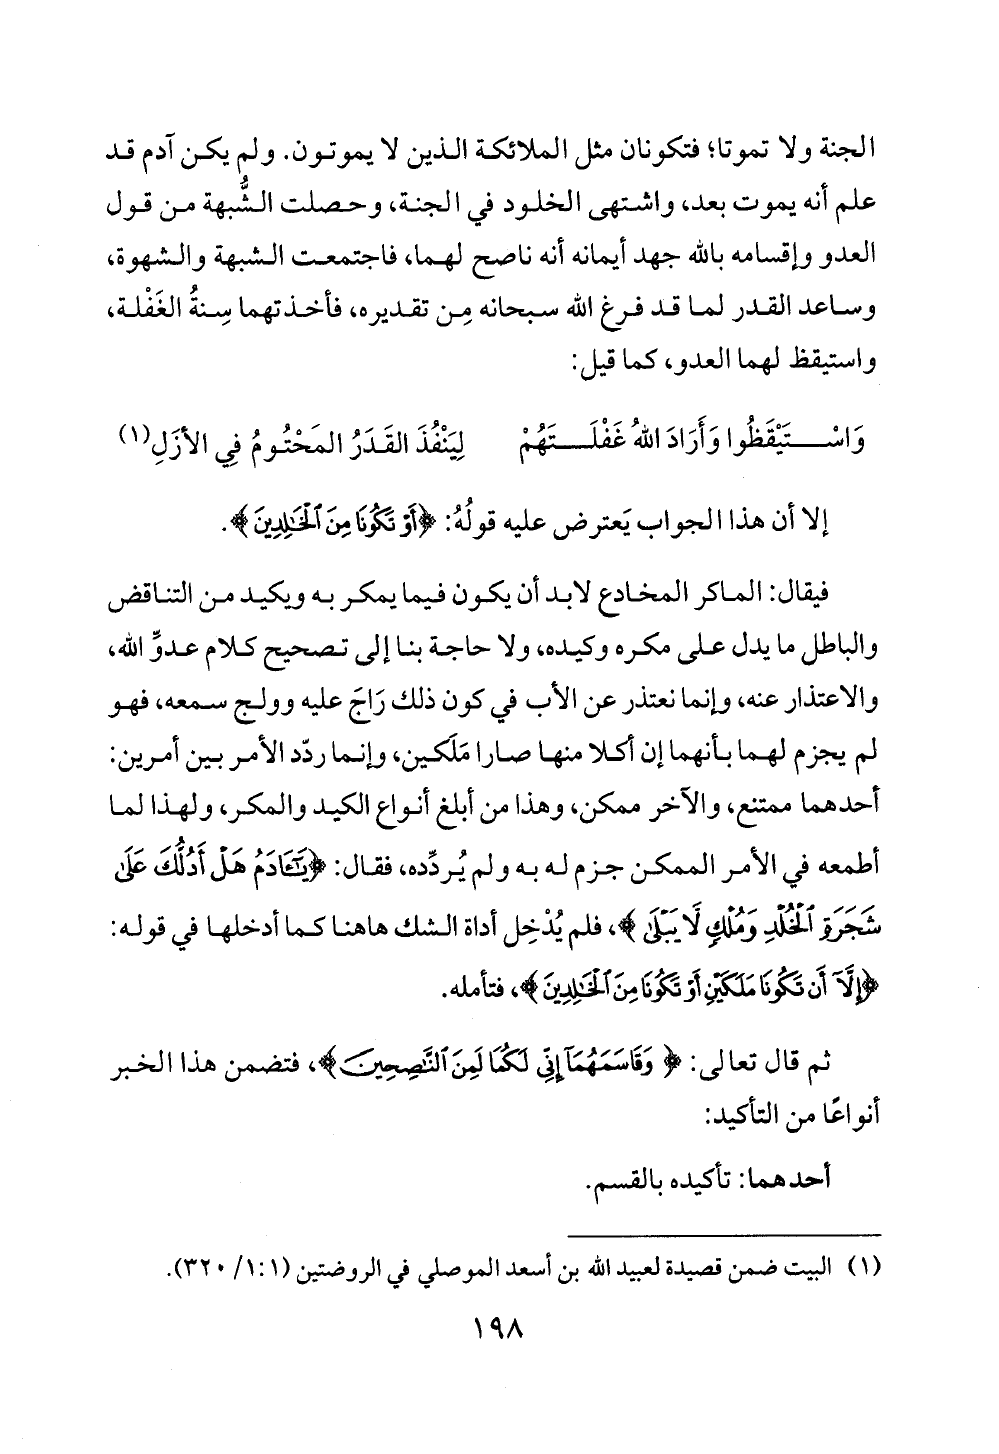 الجنة ولا تموتا؛ فتكونان مثل الملائكة الذين لا يموتون. ولم يكن آدم قد
علم أنه يموت بعد، واشتهى الخلود في الجنة، وحصلت الشُّبهة من قول
العدو وإقسامه بالله جهد أيمانه أنه ناصح لهما، فاجتمعت الشبهة والشهوة،
وساعد القدر لما قد فرغ الله سبحانه مِن تقديره، فأخذتهما سِنةُ الغَفْلة،
واستيقظ لهما العدو، كما قيل:
وَاسْتَيْقَظُوا وَأَرَادَ اللهُ غَفْلَتَهُمْ لِيَنْفُذَ القَدَرُ المَحْتُومُ فِي الأزَلِ(١)
إلا أن هذا الجواب يَعترض عليه قولُهُ: ﴿أَوْ تَكُونَا مِنَ ٱلْخَٰلِدِينَ﴾.
فيقال: الماكر المخادع لابد أن يكون فيما يمكر به ويكيد من التناقض
والباطل ما يدل على مكره وكيده، ولا حاجة بنا إلى تصحيح كلام عدوِّ الله،
والاعتذار عنه، وإنما نعتذر عن الأب في كون ذلك رَاجَ عليه وولج سمعه، فهو
لم يجزم لهما بأنهما إن أكلا منها صارا مَلَكين، وإنما ردّد الأمر بين أمرين:
أحدهما ممتنع، والآخر ممكن، وهذا من أبلغ أنواع الكيد والمكر، ولهذا لما
أطمعه في الأمر الممكن جزم له به ولم يُردِّده، فقال: ﴿يَٰٓـَٔادَمُ هَلْ أَدُلُّكَ عَلَىٰ
شَجَرَةِ ٱلْخُلْدِ وَمُلْكٍ لَّا يَبْلَىٰ﴾، فلم يُدْخِل أداة الشك هاهنا كما أدخلها في قوله:
﴿إِلَّآ أَن تَكُونَا مَلَكَيْنِ أَوْ تَكُونَا مِنَ ٱلْخَٰلِدِينَ﴾، فتأمله.
ثم قال تعالى: ﴿وَقَاسَمَهُمَآ إِنِّي لَكُمَا لَمِنَ ٱلنَّٰصِحِينَ﴾، فتضمن هذا الخبر
أنواعًا من التأكيد:
أحدهما: تأكيده بالقسم.
(١) البيت ضمن قصيدة لعبيد الله بن أسعد الموصلي في الروضتين (١:١/ ٣٢٠).
١٩٨